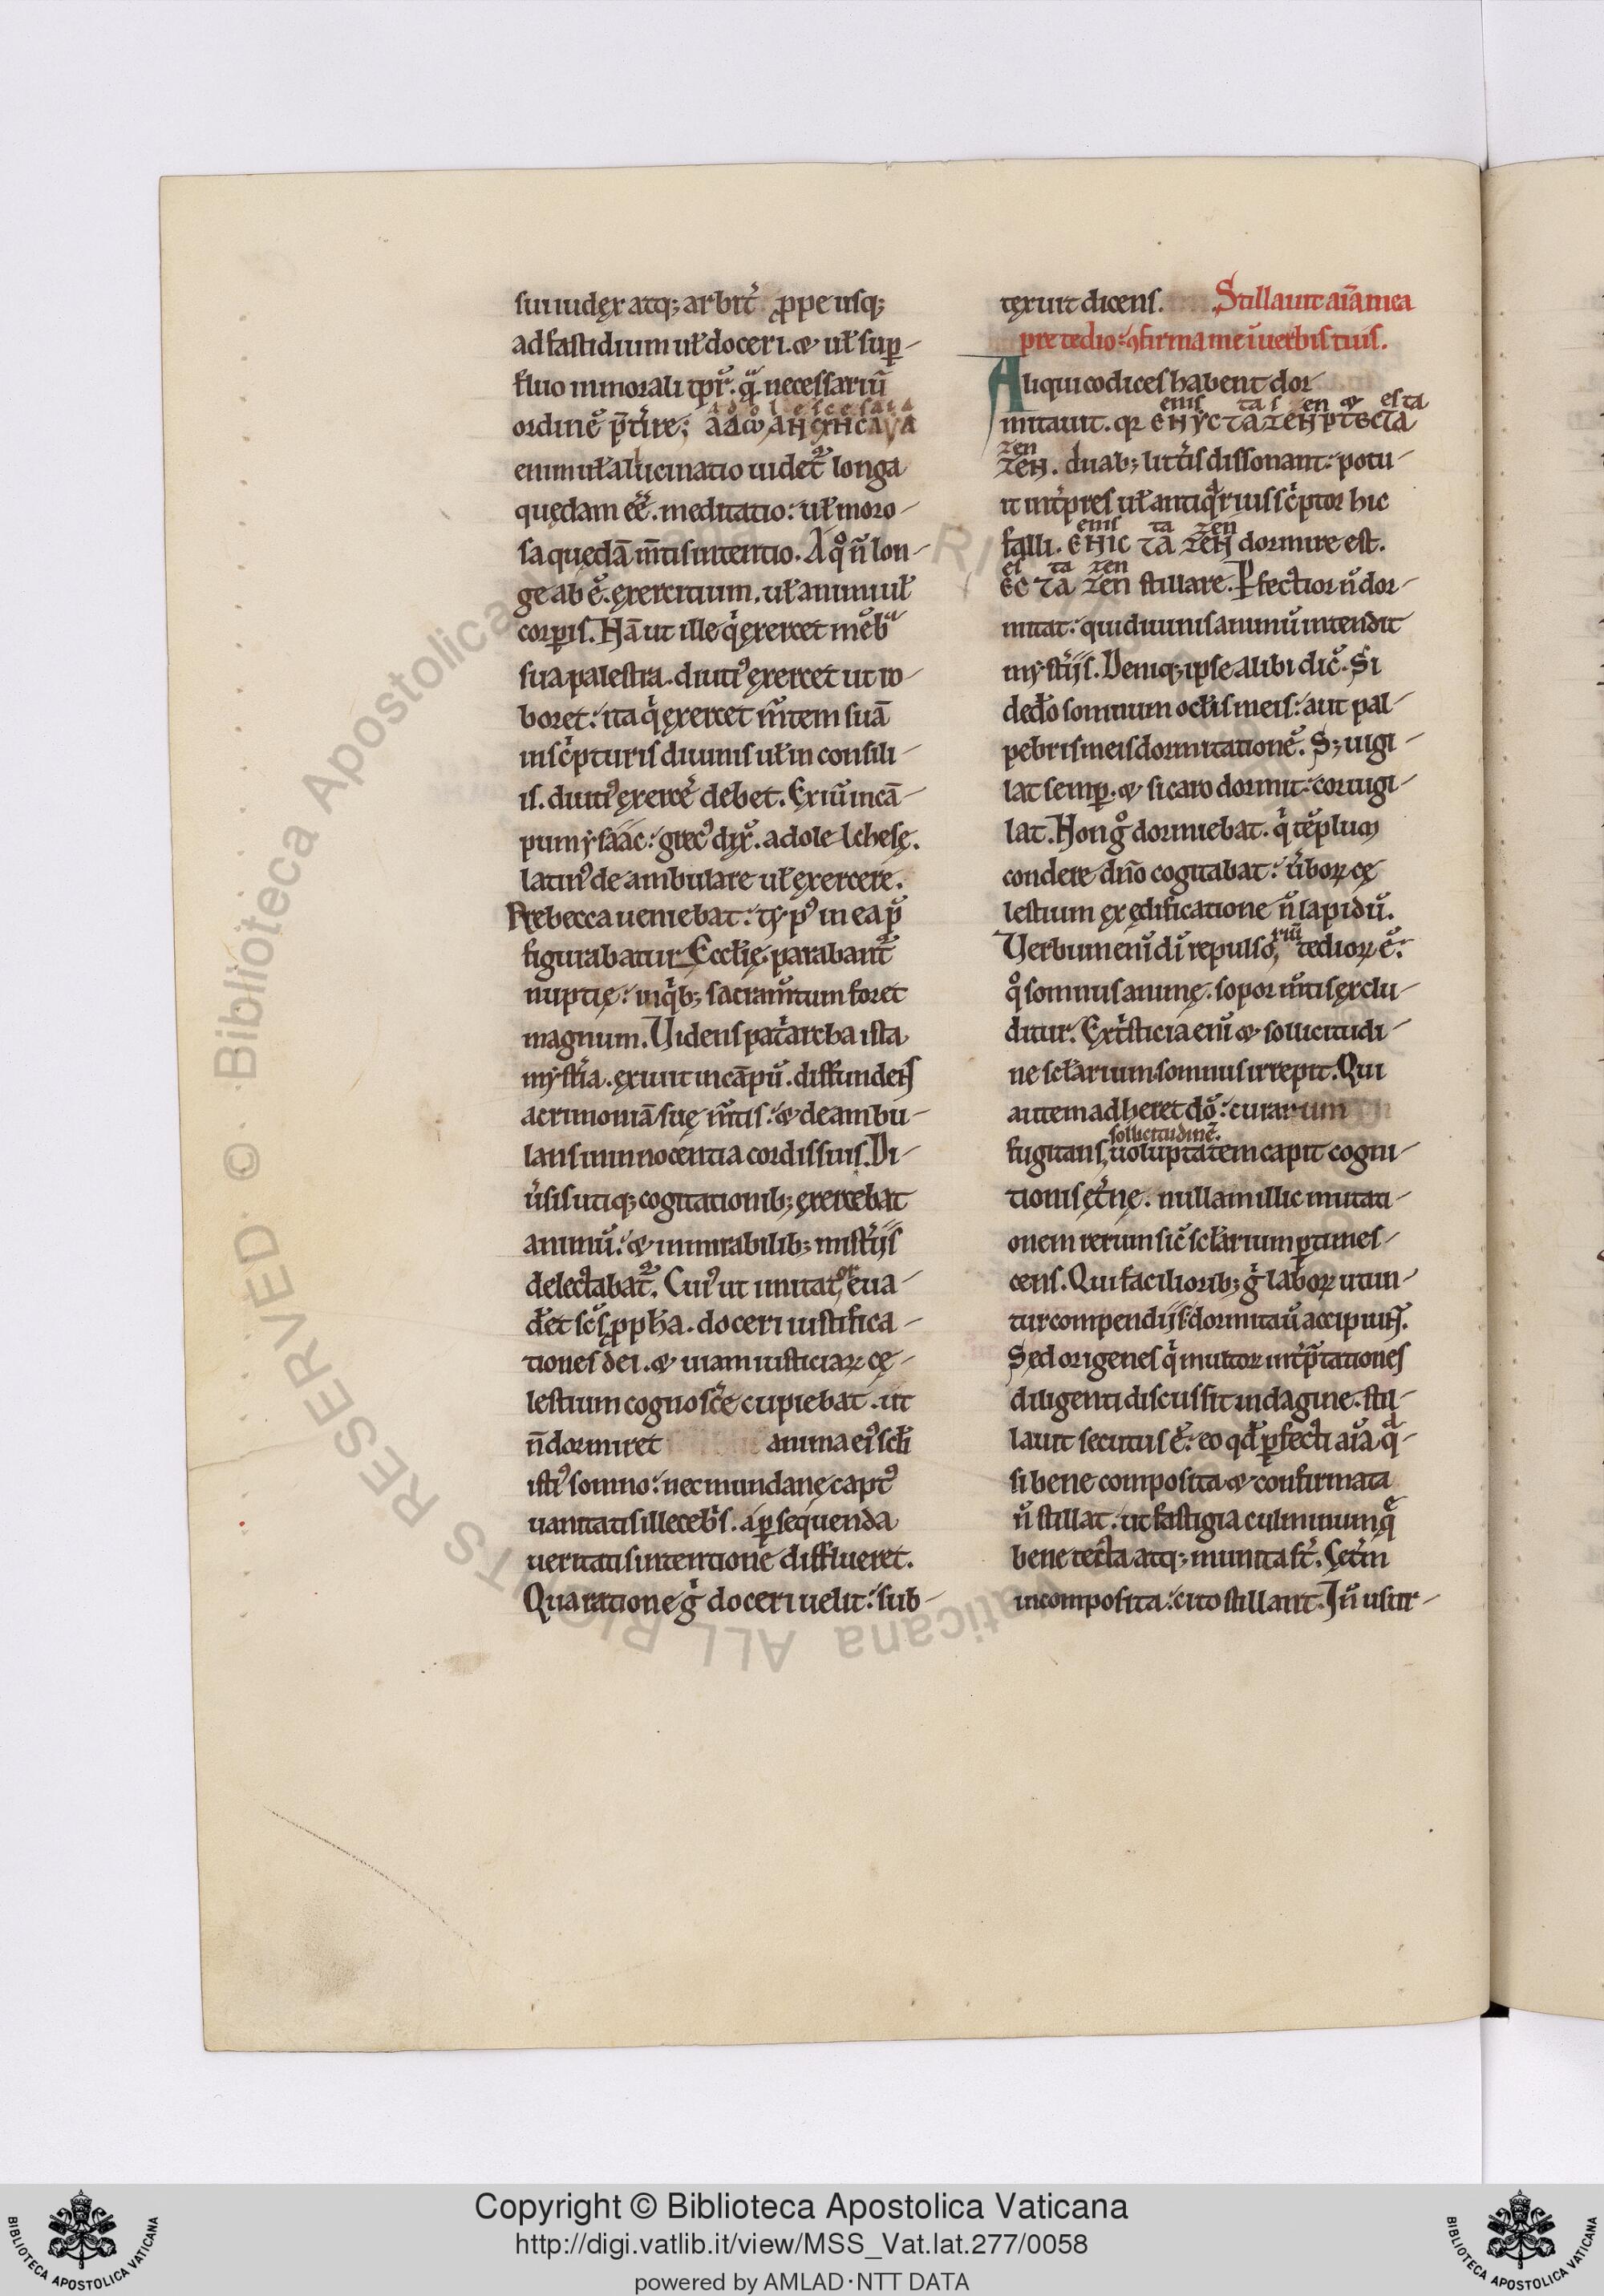 sui iudęx atq; arbitˀ ꝓpe usq;
ad fastidium uł doceri. & uł suꝑ-
fluo in morali tꝑr̃. q̃ necessariũ
ordinẽ p̃tˀire;
enim uł alucinatio uidet᷑ longa
quędam eẽ. meditatio: uł moro-
sa quędã m̃tis intentio. A qͦ ñ lon-
ge ab ẽ. ęxercitium. uł animi uł
corꝑis. Nã ut ille qͥ ęxercet mẽbᵃ
sua palestra. diutiꝰ ęxercet ut ro-
boret: ita qͥ ęxercet m̃tem suã
in scͥpturis diuinis uł in consili-
is. diutiꝰ ęxercẽ debet. Exiũ in cã-
pum ẏsaac: grecꝰ dix̃. adolelchesę.
latinꝰ deambulare uł ęxercere.
Rebecca ueniebat: in ea
figurabatur Eccłię. parabant᷑
nuptię: in qͥb; sacram̃tum foret
magnum. Uidens patͥarcha ista
mẏstˀia. ęxiuit in cãpũ. diffundens
acrimoniã suę m̃tis: & deambu-
lans in innocentia cordis sui. Di-
uˀsis utiq; cogitationib; ęxercebat
animũ: & in mirabilib; mistˀiis
delectabat᷑. Cuiꝰ ut imitator eua-
dˀet scs̃ ꝓpħa. doceri iustifica-
tiones dei. & uiam iusticiaꝝ cę-
lestium cognoscˀe cupiebat. ut
ñ dormiret anima eiꝰ scłi
istiꝰ somno: nec mundanę captꝰ
uanitatis illecebˀs. a ꝑsequenda
ueritatis intentione difflueret.
Qua ratione gͥ doceri uelit: sub-
tęxuit dicens. Stillauit aĩa mea
pre tedio: ꝯfirma me ĩ uerbis tuis.
Aliqui codices habent dor
enis ta s en & es ta
mitauit. qꝛ
zen
ZEH. duab; littˀis dissonant: potu-
it intˀpres uł antiqͥrius scͥptor hic
enis ta zen
falli. EHIC TA ZEH dormire est.
es ta zen
EC TA ZEN stillare. Ꝑfectior ñ dor-
mitat: qui diuinis animũ intendit
mẏstˀiis. Deniq; ipse alibi dic̃. Si
dedˀo somnum oclˀis meis: aut pal-
pebris meis dormitationẽ. S; uigi-
lat semꝑ. & si caro dormit: cor uigi-
lat. Non gͦ dormiebat. qͥ tẽplum
condere dño cogitabat: uˀboꝝ cę
lestium ęx ędificatione ñ lapidũ.
riũ
Uerbum enĩ dĩ repulso, tedioꝝ ẽ:
qͦ somnus animę. sopor m̃tis ęxclu-
ditur. Ex tͥsticia enĩ & sollicitudi-
ne scłarium somnus irrepit. Qui
autem adheret dõ: curarum
sollicitudinẽ.
fugitans, uoluptatem capit cogni-
tionis ętˀnę. nullam illic mutati-
onem rerum sic̃ scłarium ꝑtimes-
cens. Qui facilioribus gͥ laboꝝ utun-
tur compendiis: dormitaũ accipiunt᷑.
Sed origenes qͥ multoꝝ intˀp̃tationes
diligenti discussit indagine. stil-
lauit secutus ẽ: eo qđ ꝑfecti aĩa qͣ-
si bene composita & confirmata
ñ stillat. ut fastigia culminum quę
bene tecta atq; munita st̃. Cetˀm
incomposita: cito stillant. In ustr-
Copyright © Biblioteca Apostolica Vaticana
http://digi.vatlib.it/view/MSS_Vat.lat.277/0058
powered by AMLAD·NTT DATA
BIBLIOTECA APOSTOLICA VATICANA
BIBLIOTECA APOSTOLICA VATICANA